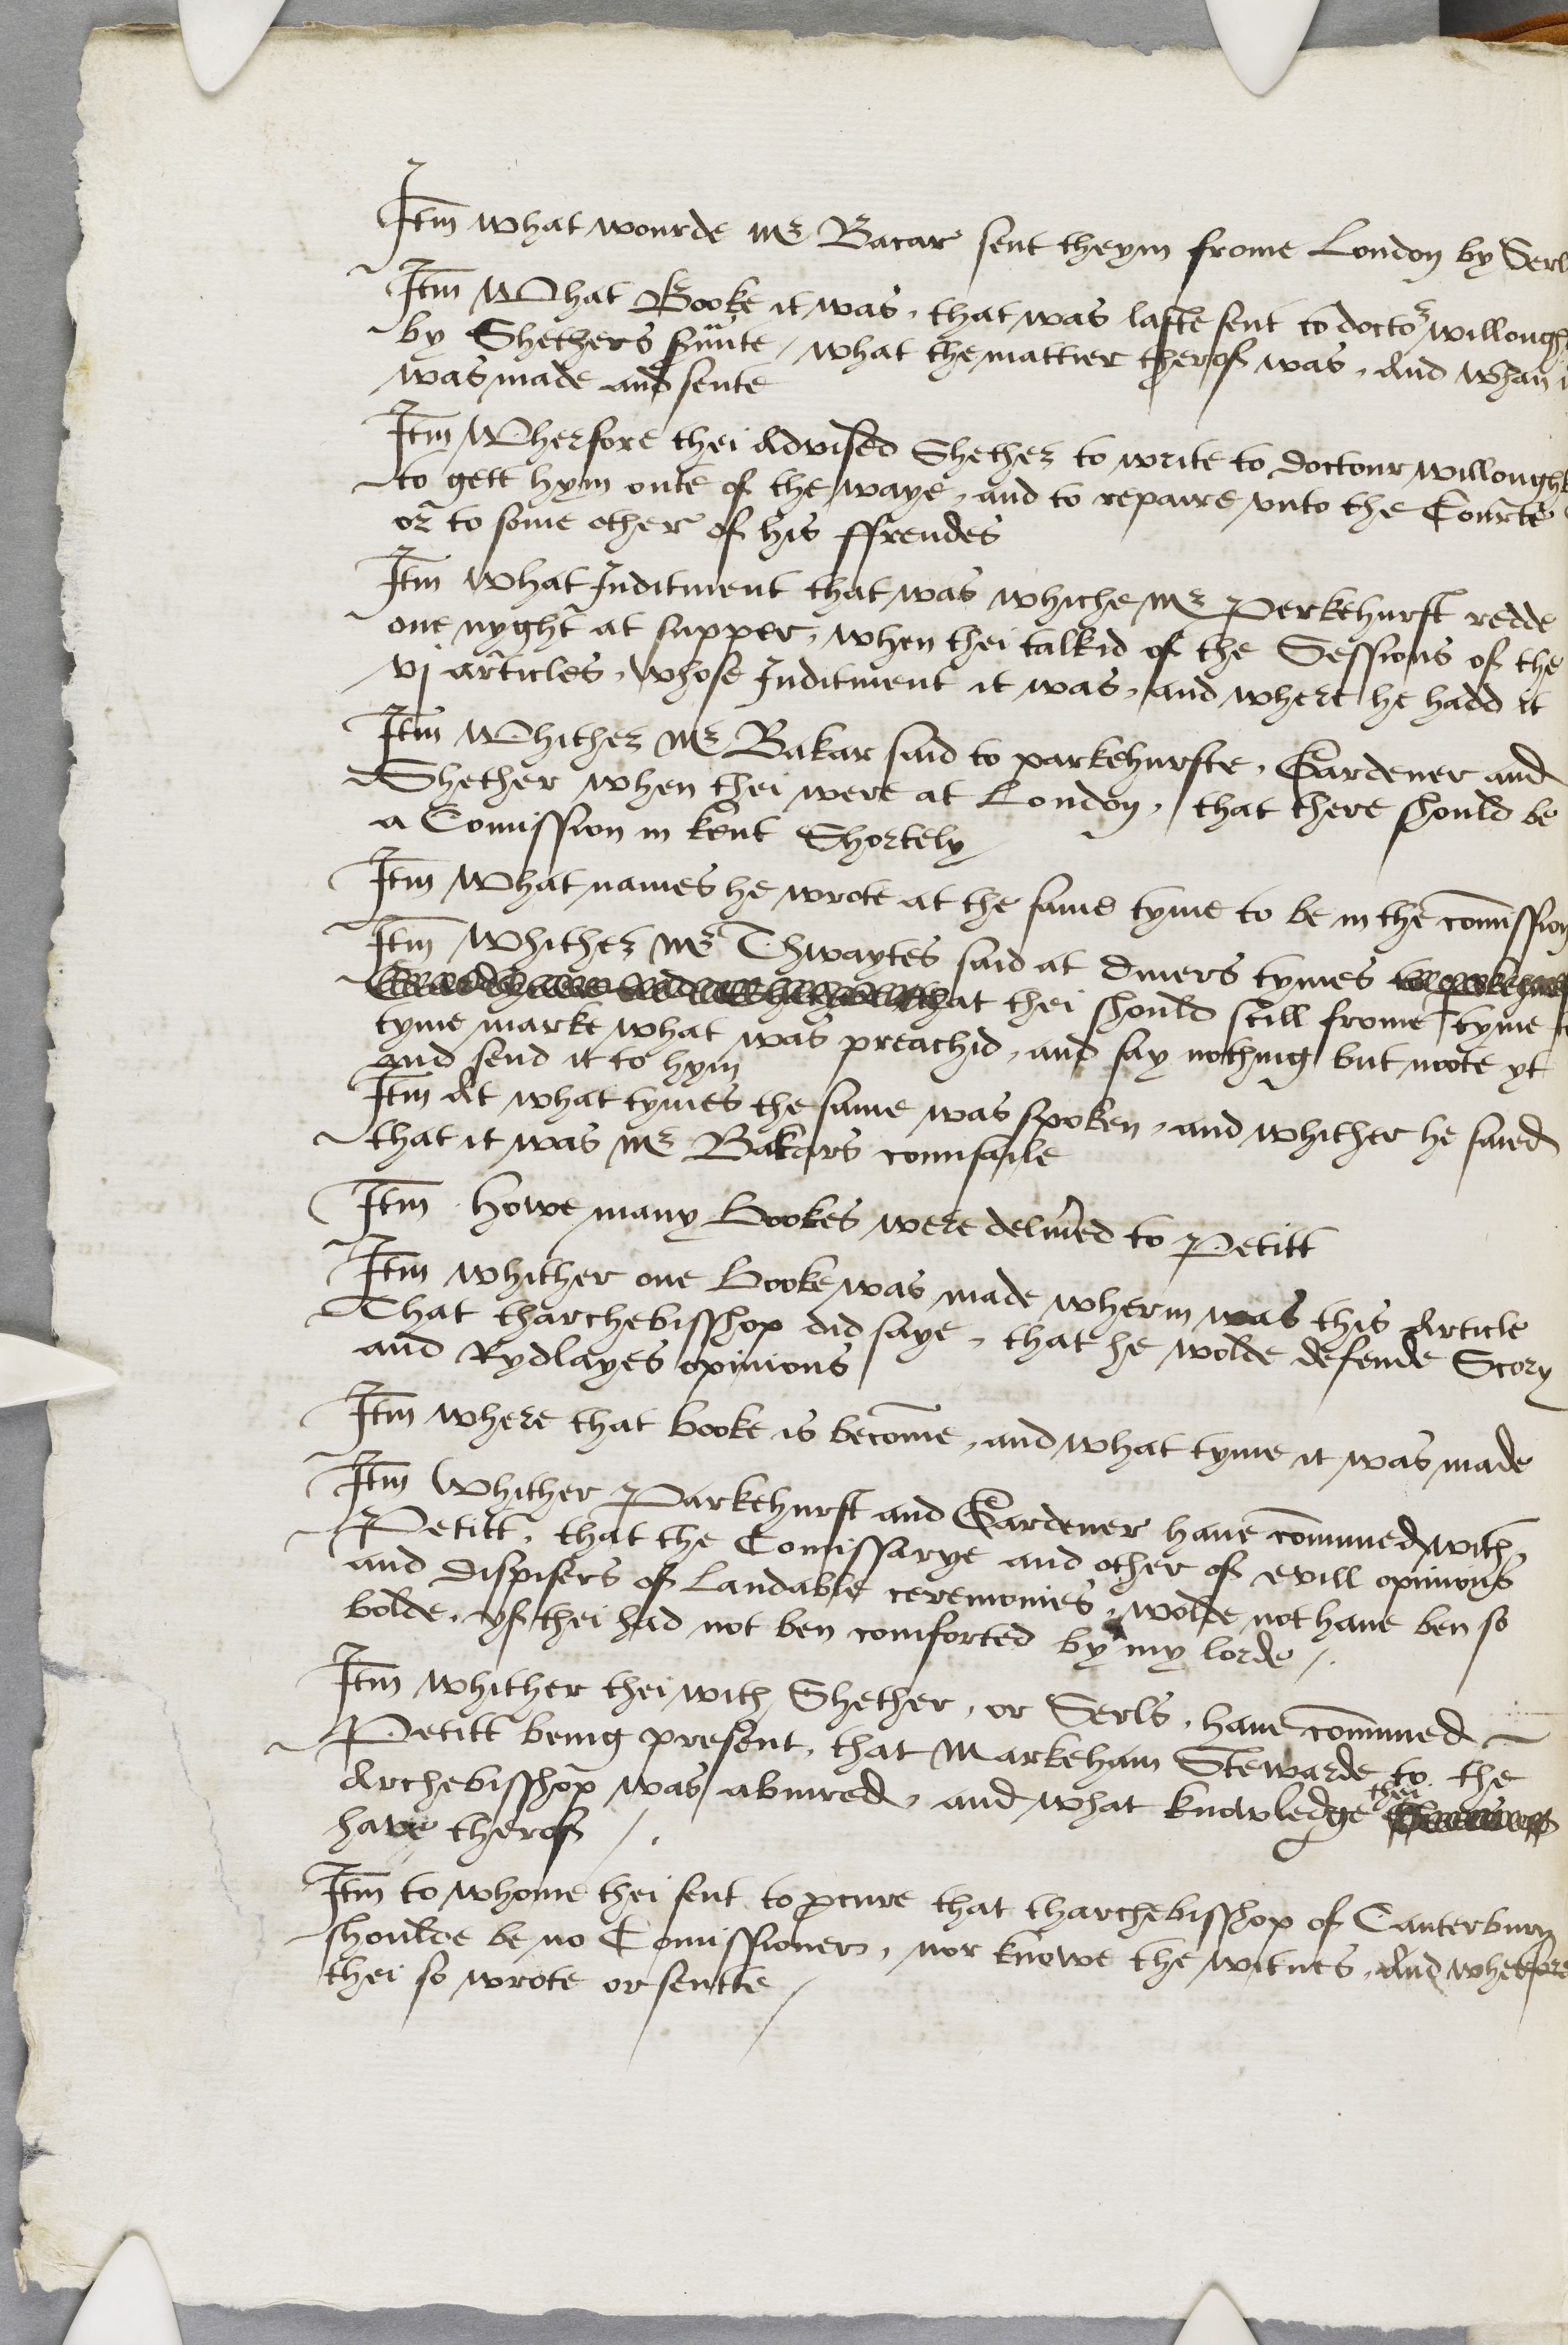 Itm what wourde mr Bacar sent theym frome London by Serl
Itm What Booke it was, that was laste sent to doctor willough
by Shethers srunte / what the mattier therof was, And whan i
was made and sente
Itm Wherfore thei Advised Shether to write to doctour willough
to gett hym oute of the waye, and to repaire vnto the Courte
or to some other of his ffrendes
Itm What Inditment that was whiche mr Perkehurst redde
one nyght at supper, when thei talkid of the Sessions of the
vj articles, whose Inditment it was, and where he hadd it
Itm Whither mr Bakar said to parkehurste, Gardener and
Shether when thei were at London, that there should be
a Comission in kent Shortely
Itm What names he wrote at the same tyme to be in the comission
Itm Whither mr Thwaytes said at diuers tymes
that thei should still frome tyme
tyme marke what was preachid, and say nothing but noote yt
and send it to hym
Itm At what tymes the same was spoken, and whither he saied
that it was mr Bakars counsaile
Itm howe many Bookes were deliued to Petitt
Itm whither one Booke was made wherin was this Article
That tharchebisshop did saye, that he wolde defende Scory
and Rydlayes opinions
Itm where that booke is become, and what tyme it was made
Itm Whither Parkehurst and Gardener haue commed with
Petitt, that the Comissarye and other of evill opinions
and dispisers of laudable ceremonies, wolde not haue ben so
bolde, yf thei had not ben comforted by my lorde /.
Itm whither thei with Shether, or Serls, haue commed
Petitt being present, that Markeham Stewarde to the
Archebisshop was abiured, and what knowledge thei
have therof /.
Itm to whome thei sent to pcure that tharchebisshop of Canterbury
shoulde be no Comissioner, nor knowe the witnes, And wherfore
thei so wrote or sentte /